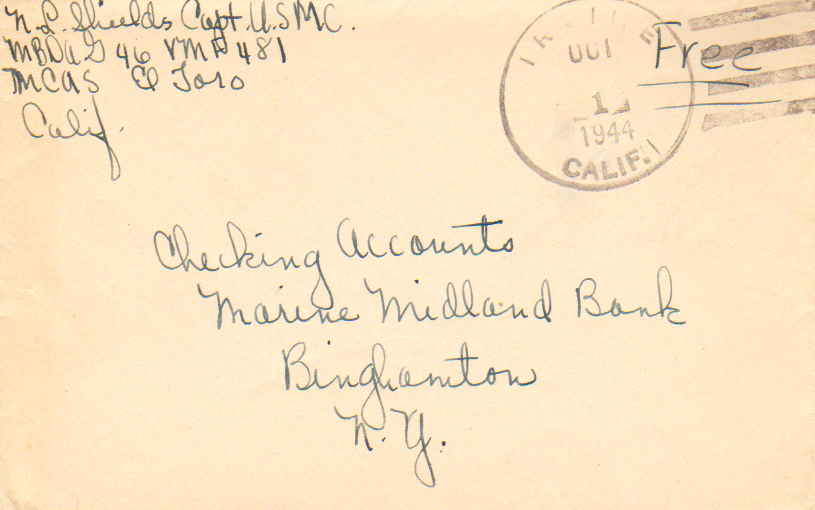 N. L. Shields Capt. U.S.M.C.
MBDAG 46 VMF 481
MCAS El Toro
Calif.
IRVINE
OCT
1
1944
CALIF.
Free
Checking Accounts
Marine Midland Bank
Binghamton
N. Y.